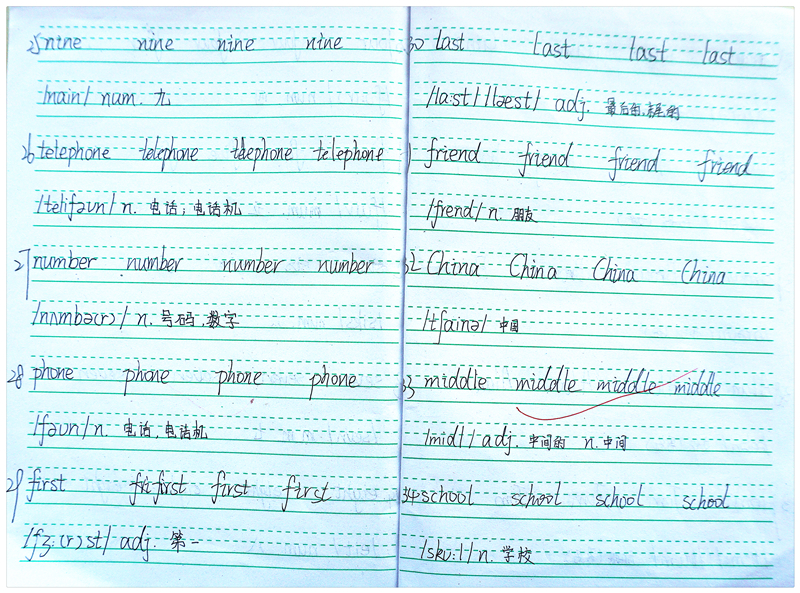 25 nine nine nine nine
/nain/ num. 九
26 telephone telephone telephone telephone
/telifəun/ n. 电话；电话机
27 number number number number
/nʌmbə(r)/ n. 号码,数字
28 phone phone phone phone
/fəun/ n. 电话,电话机
29 first first first first
/fɜ:(r)st/ adj. 第一
30 last last last last
/la:st/ /læst/ adj. 最后的,末尾的
friend friend friend friend
/frend/ n. 朋友
32 China China China China
/tʃainə/ 中国
33 middle middle middle middle
/midl/ adj. 中间的 n. 中间
34 school school school school
/sku:l/ n. 学校